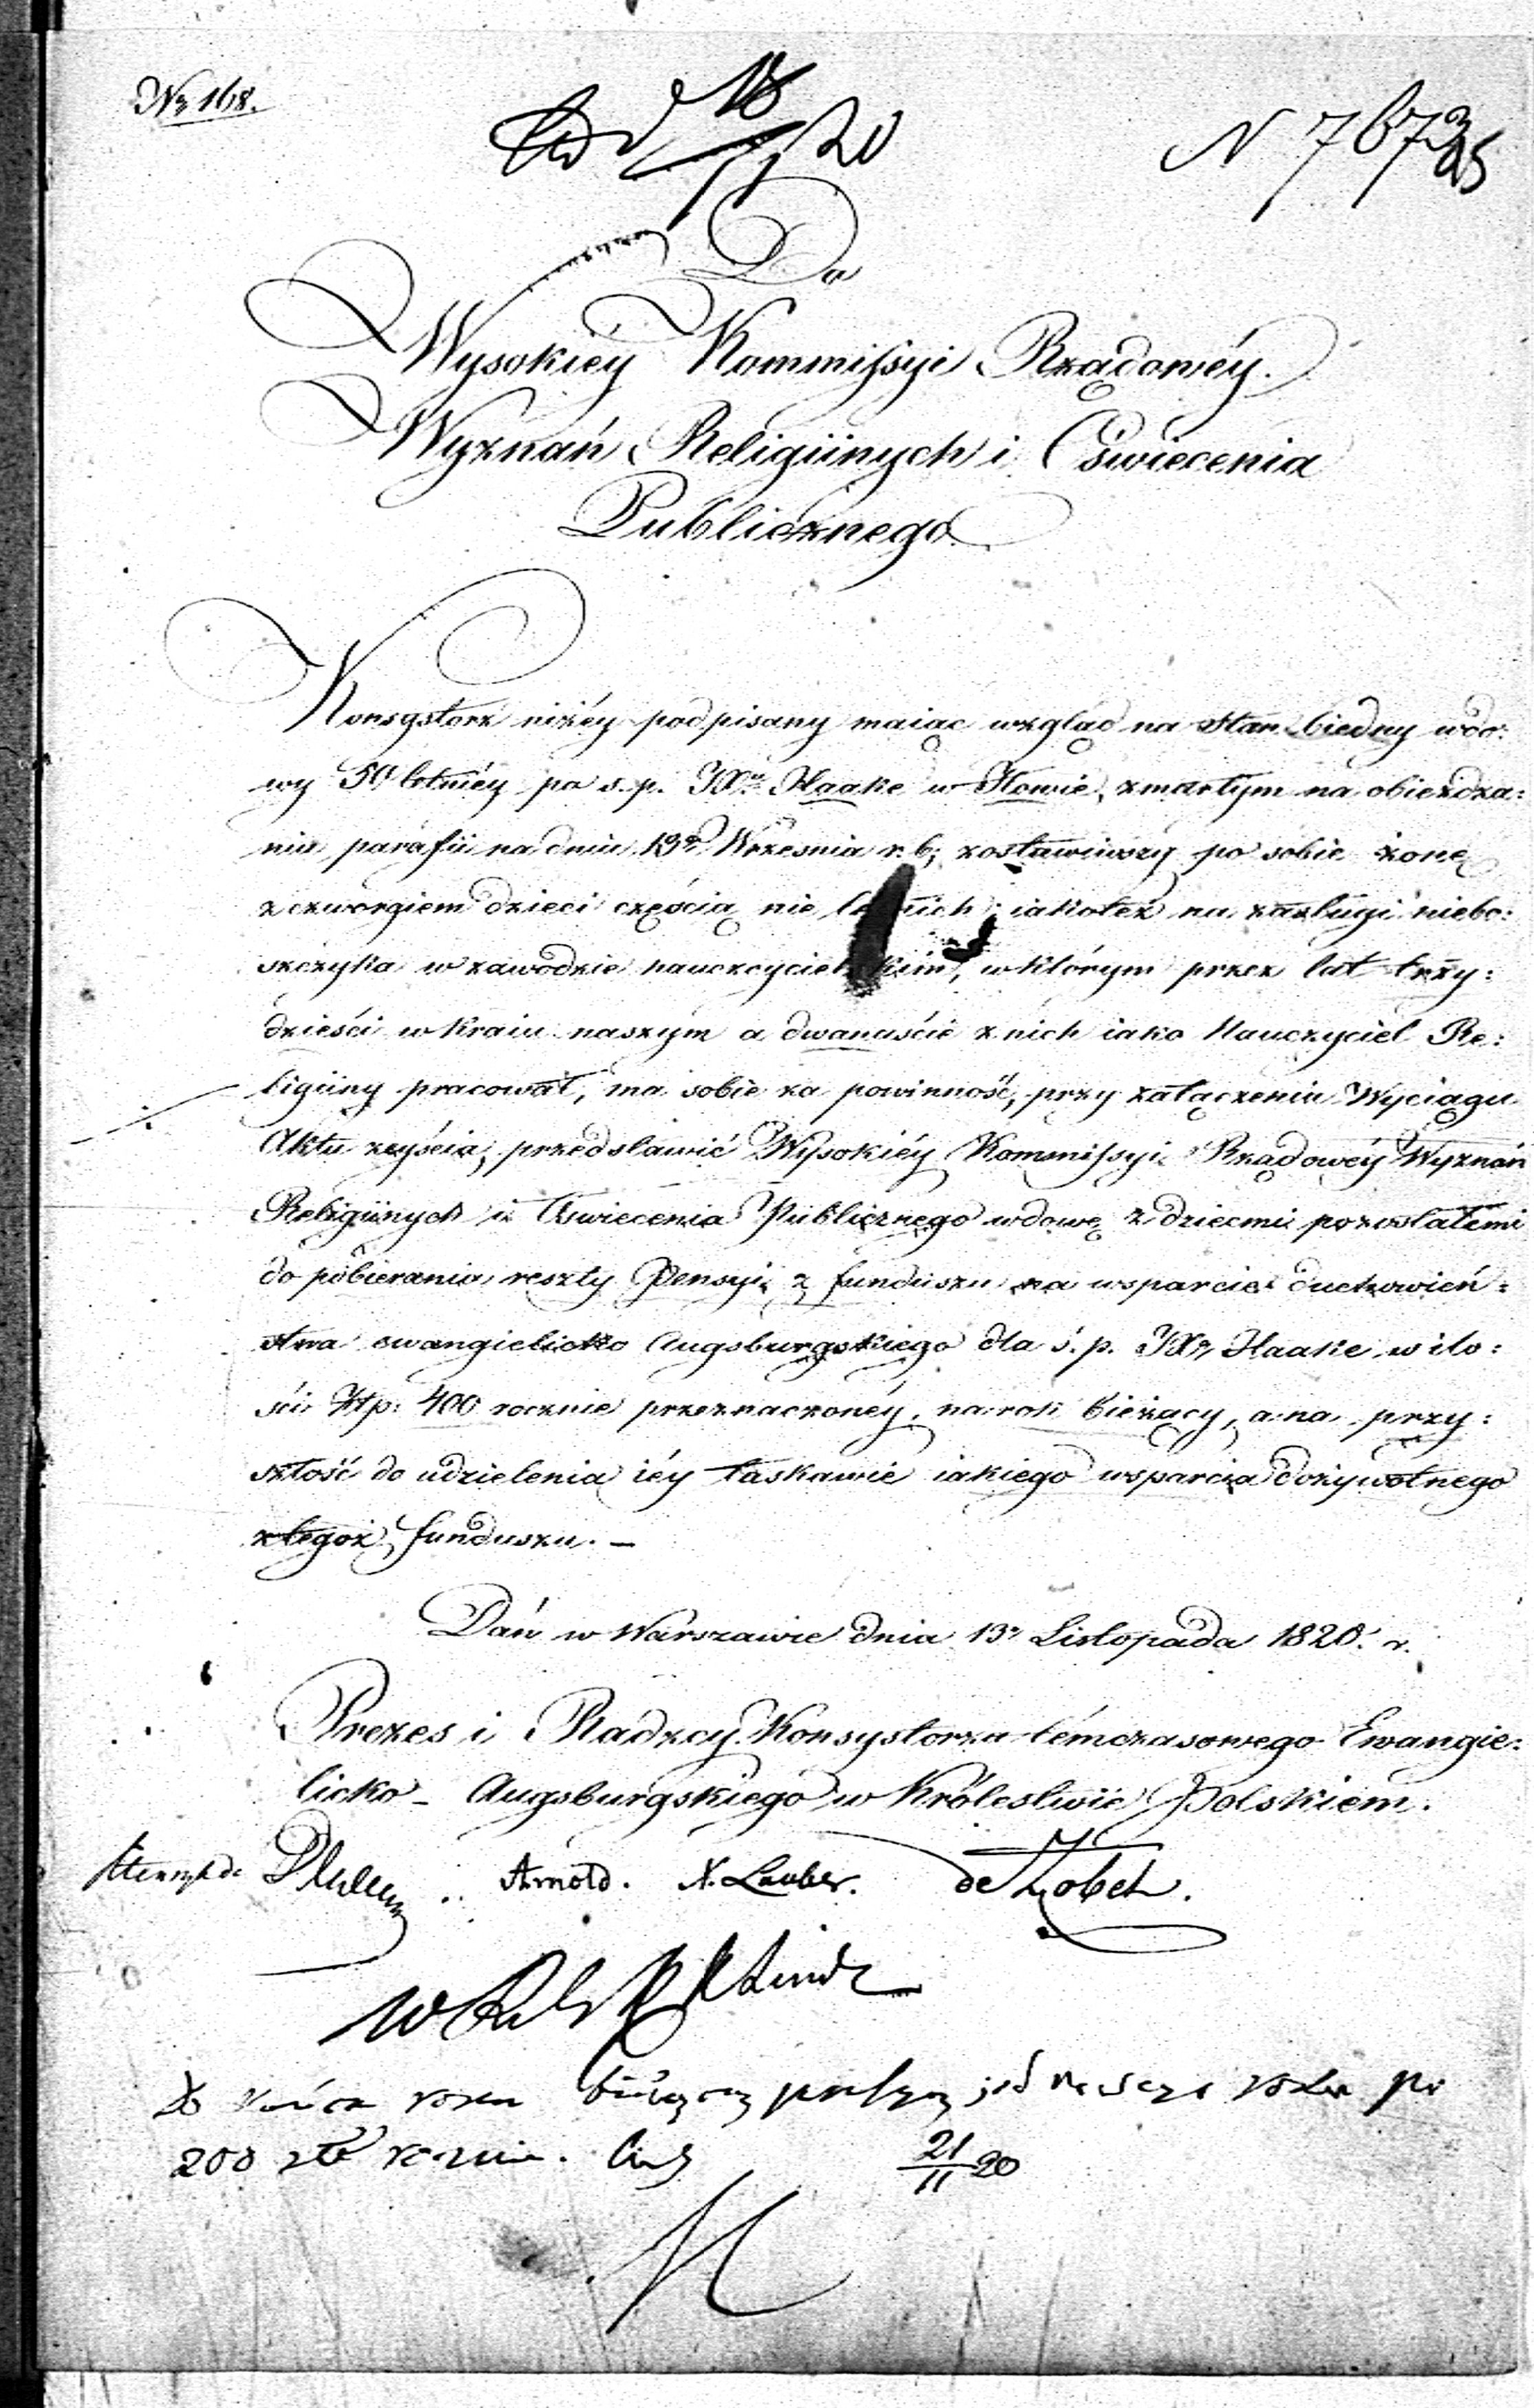 Nr 168.
18/11 20
N 7673
Do
Wysokiéy Kommissyi Rządowéy
Wyznań Religiinych i Oświecenia
Publicznego
Konsystorz niżéy podpisany maiąc wzgląd na stan biedny wdo:
wy 50 letniéy po s. p. JX. Haake w Iłowie, zmarłym na obieżdza:
niu parafii na dniu 13 Września r. b; zostawiwszy po sobie żonę
z czworgiem dzieci częścią nie letnich; iakoteż na zasługi niebo:
szczyka w zawodzie nauczycielskim, w którym przez lat trzy:
dzieści w kraiu naszym a dwanaście z nich iako Nauczyciel Re:
ligiiny pracował, ma sobie za powinność, przy załączeniu Wyciągu
Aktu zeyścia, przedstawić Wysokiéy Kommissyi Rządowéy Wyznań
Religiinych i Oswiecenia Publicznego wdowę z dziecmi pozostałemi
do pobierania reszty Pensyi z funduszu na wsparcie duchowień:
stwa ewangielicko Augsburgskiego dla ś. p. JX. Haake w ilo:
ści Ztp: 400 rocznie przeznaczonéy, na rok bieżący, a na przy:
szłość do udzielenia iéy łaskawie iakiego wsparcia dożywotnego
z tegoż funduszu. –
Dań w Warszawie dnia 13 Listopada 1820. r.
Prezes i Radzcy Konsystorza témczasowego Ewangie:
licko - Augsburgskiego w Królestwie Polskiem.
Arnold. N. Lauber. de Zobel.
Do końca roku bieżący
200 zł
21/11 20